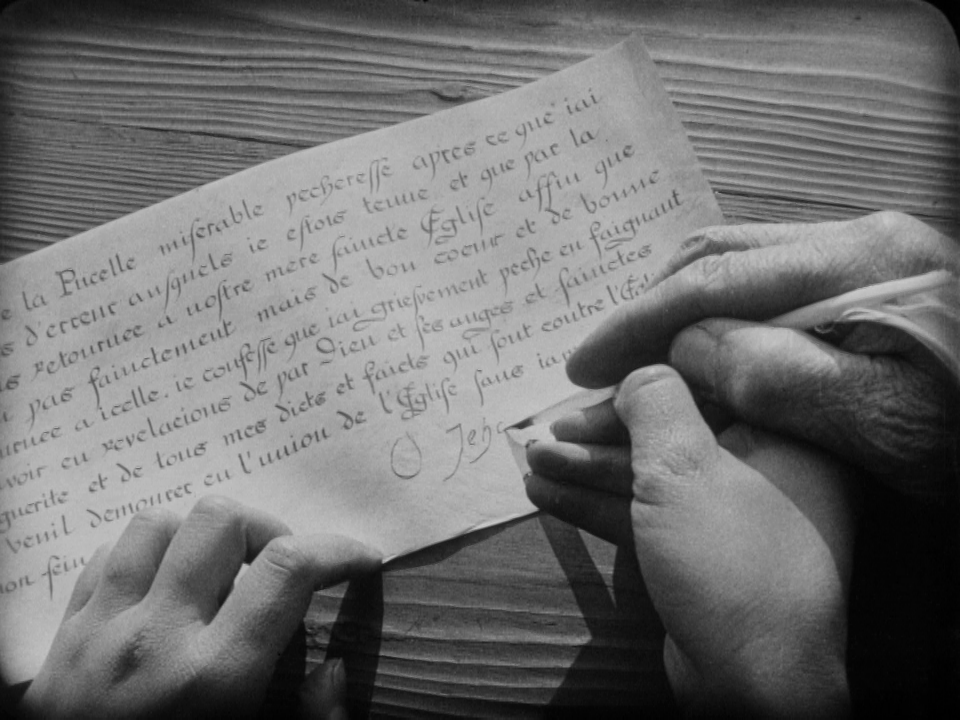 e la Pucelle miserable pecheresse apres ce que iai
s d'erreur ausquels ie estois tenue et que par la
retournee a nostre mere saincte Eglise affin que
pas fainctement mais de bon coeur et de bonne
icelle. ie confesse que iai griefvement peche en faignant
voir eu revelacions de par Dieu et ses anges et sainctes
guerite et de tous mes dicts et faicts qui sont contre l'Eg
venil demourer en l'union de l'Eglise sans iam
on sein
O Jeha